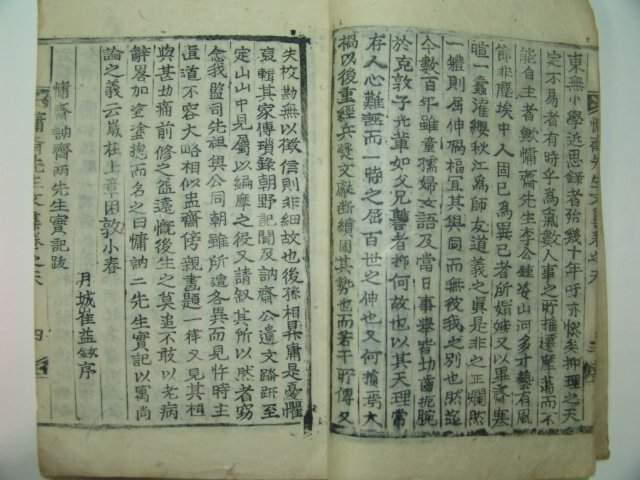 東無小學近思錄者殆幾十年吁亦慘矣抑理之天
定不易者有時乎爲氣數人事之所推遷摩蕩而不
能自主者歟慵齋先生李公鍾姿山河多才藝有風
節非塵埃中人固已爲異己者所媢嫉又以畢齋寒
暄一蠹濯纓秋江爲師友道義之眞是非之正爛然
一體則屈伸禍福宜其與同而無彼我之別也然迄
今數百年雖童孺婦女語及當日事擧皆切齒扼腕
於克敦子光輩如父兄讐者抑何故也以其天理常
存人心難誣而一時之屈百世之伸也又何損焉大
禍以後重經兵燹文獻斷續固其勢也而若干所傳又
失挍勘無以徵信則非細故也後孫相昇庸是憂懼
裒輯其家傳瑣錄朝野記聞及訥齋公遺文踏跡至
定山山中見屬以編摩之役又請叙其所以然者窃
念我監司先祖與公同朝雖所遭各異而見忤時主
直道不容大略相似盅齋傍親書題一律又見其相
與甚切痛前修之益遠慨後生之莫追不敢以老病
辭畧加塗塗摠而名之曰慵訥二先生實記以寓尚
論之義云歲在上章困敦小春
月城崔益鉉序
慵齋訥齋兩先生實記跋
慵齋先生文集卷之天
四